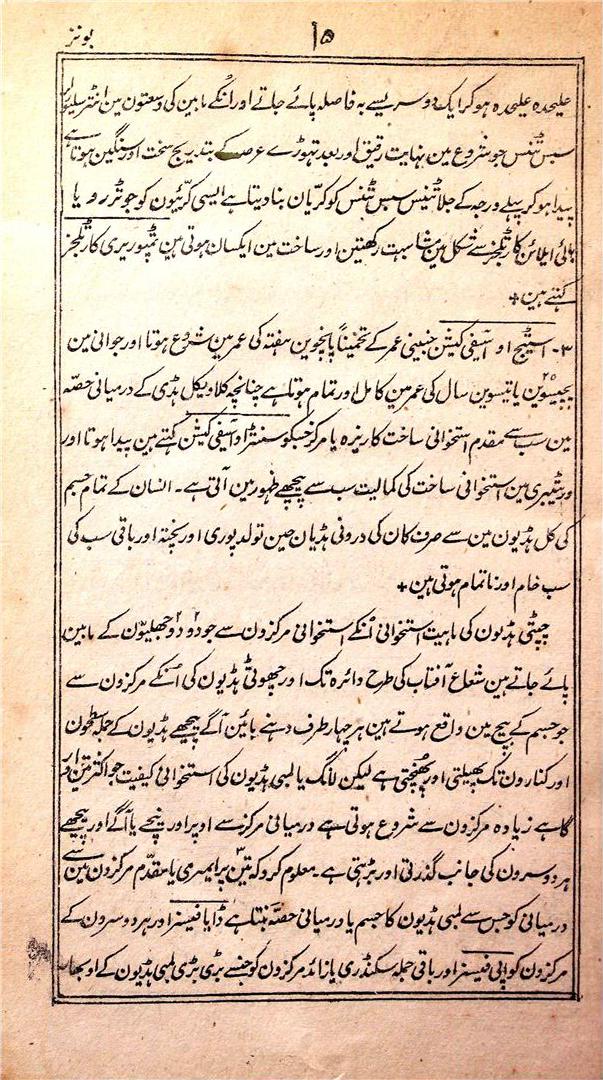 بونز ۱۵
علیحدہ علیحدہ ہوکر ایک دوسریسے بہ فاصلہ پائے جاتے اور انکے مابین کی وسعتون مین انٹرسیلیولر
سبس ٹنس جو شروع مین نہایت رقیق اور بعد تہوڑے عرصہ کے بتدریج سخت اور سنگین ہوتا ہے
پیدا ہوکر پہلے ورجہ کے جلاٹنیس سبس ٹنس کو کرّیان بنا دیتا ہے ایسی کرّئیون کو جو ٹررو یا
ہائی ایلائن کارٹلجز سے شکل مین مناسبت رکھتین اور ساخت مین ایکسان ہوتی ہین ٹمپوریری کارٹلجز
کہتے ہین +
۳۔ اسٹیج او آسیفی کیشن جنینی عمر کے تخمیناً پانچوین ہفتہ کی عمر مین شروع ہوتا اور جوانی مین
پچیسوین ۲۵ یا تیسوین سال کی عمر مین کامل اور تمام ہوتا ہے چنانچہ کلاویکل ہڈی کے درمیانی حصّہ
مین سب سے مقدم استخوانی ساخت کا ریزہ یا مرکز جسکو سنٹر او آسیفی کیشن کہتے ہین پیدا ہوتا اور
ورٹیبری مین استخوانی ساخت کی کمالیت سب سے پیچھے ظہور مین آتی ہے۔ انسان کے تمام جسم
کی کل ہڈیون مین سے صرف کان کی درونی ہڈیان حین تولد پوری اور پختہ اور باقی سب کی
سب خام اور ناتمام ہوتی ہین +
چپٹی ہڈیون کی ماہیت استخوانی اُنکے استخوانی مرکزون سے جو دو ۲ دو ۲ جھلیون کے مابین
پائے جاتے ہین شعاع آفتاب کی طرح دائرہ تک اور چھوٹی ہڈیون کی اُنکے مرکزون سے
جو جسم کے بیچ مین واقع ہوتے ہین ہر چہار طرف دہنے بائین آگے پیچھے ہڈیون کے جملہ سطحون
اور کنارون تک پھیلتی اور پھنچتی ہے لیکن لانگ یا لمبی ہڈیون کی استخوانی کیفیت جو اکثر تین اور
گاہے زیادہ مرکزون سے شروع ہوتی ہے درمیانی مرکز سے اوپر اور نیچے یا آگے اور پیچھے
ہر دو سرون کی جانب گذرتی اور بڑہتی ہے۔ معلوم کرو کہ تین ۳ پرایمیری یا مقدّم مرکزون مین سے
درمیانی کو جس سے لمبی ہڈیون کا جسم یا درمیانی حصّہ بنتا ہے ڈایافیسز اور ہر دو سرون کے
مرکزون کو اپی فیسز اور باقی جملہ سکنڈری یا زائد مرکزون کو جنسے بڑی بڑی لمبی ہڈیون کے اوبھار